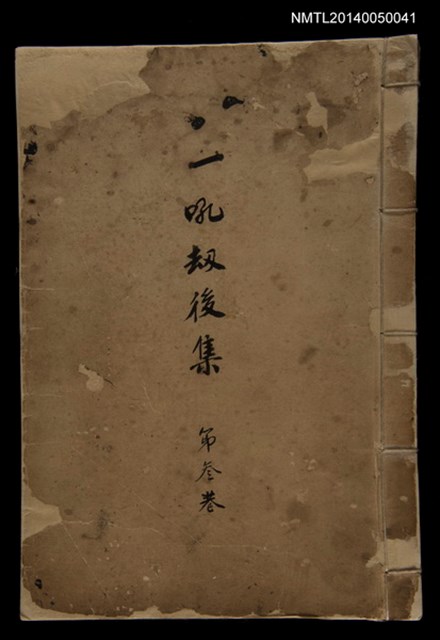 NMTL20140050041
一吼劫後集
第叁卷